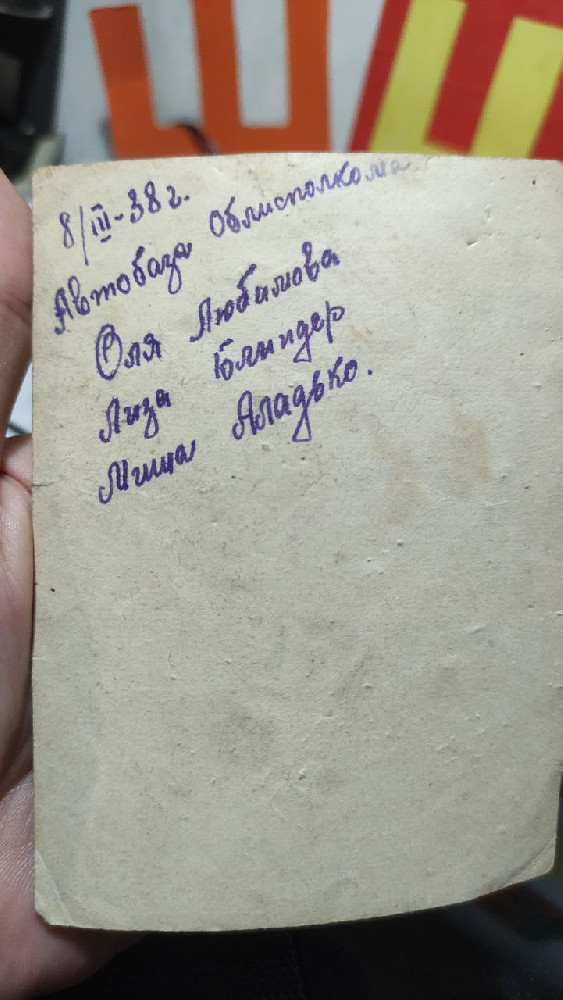 8/III-38 г.
Автобаза Облисполкома
Оля Любимова
Лиза Блиндер
Миша Аладько.